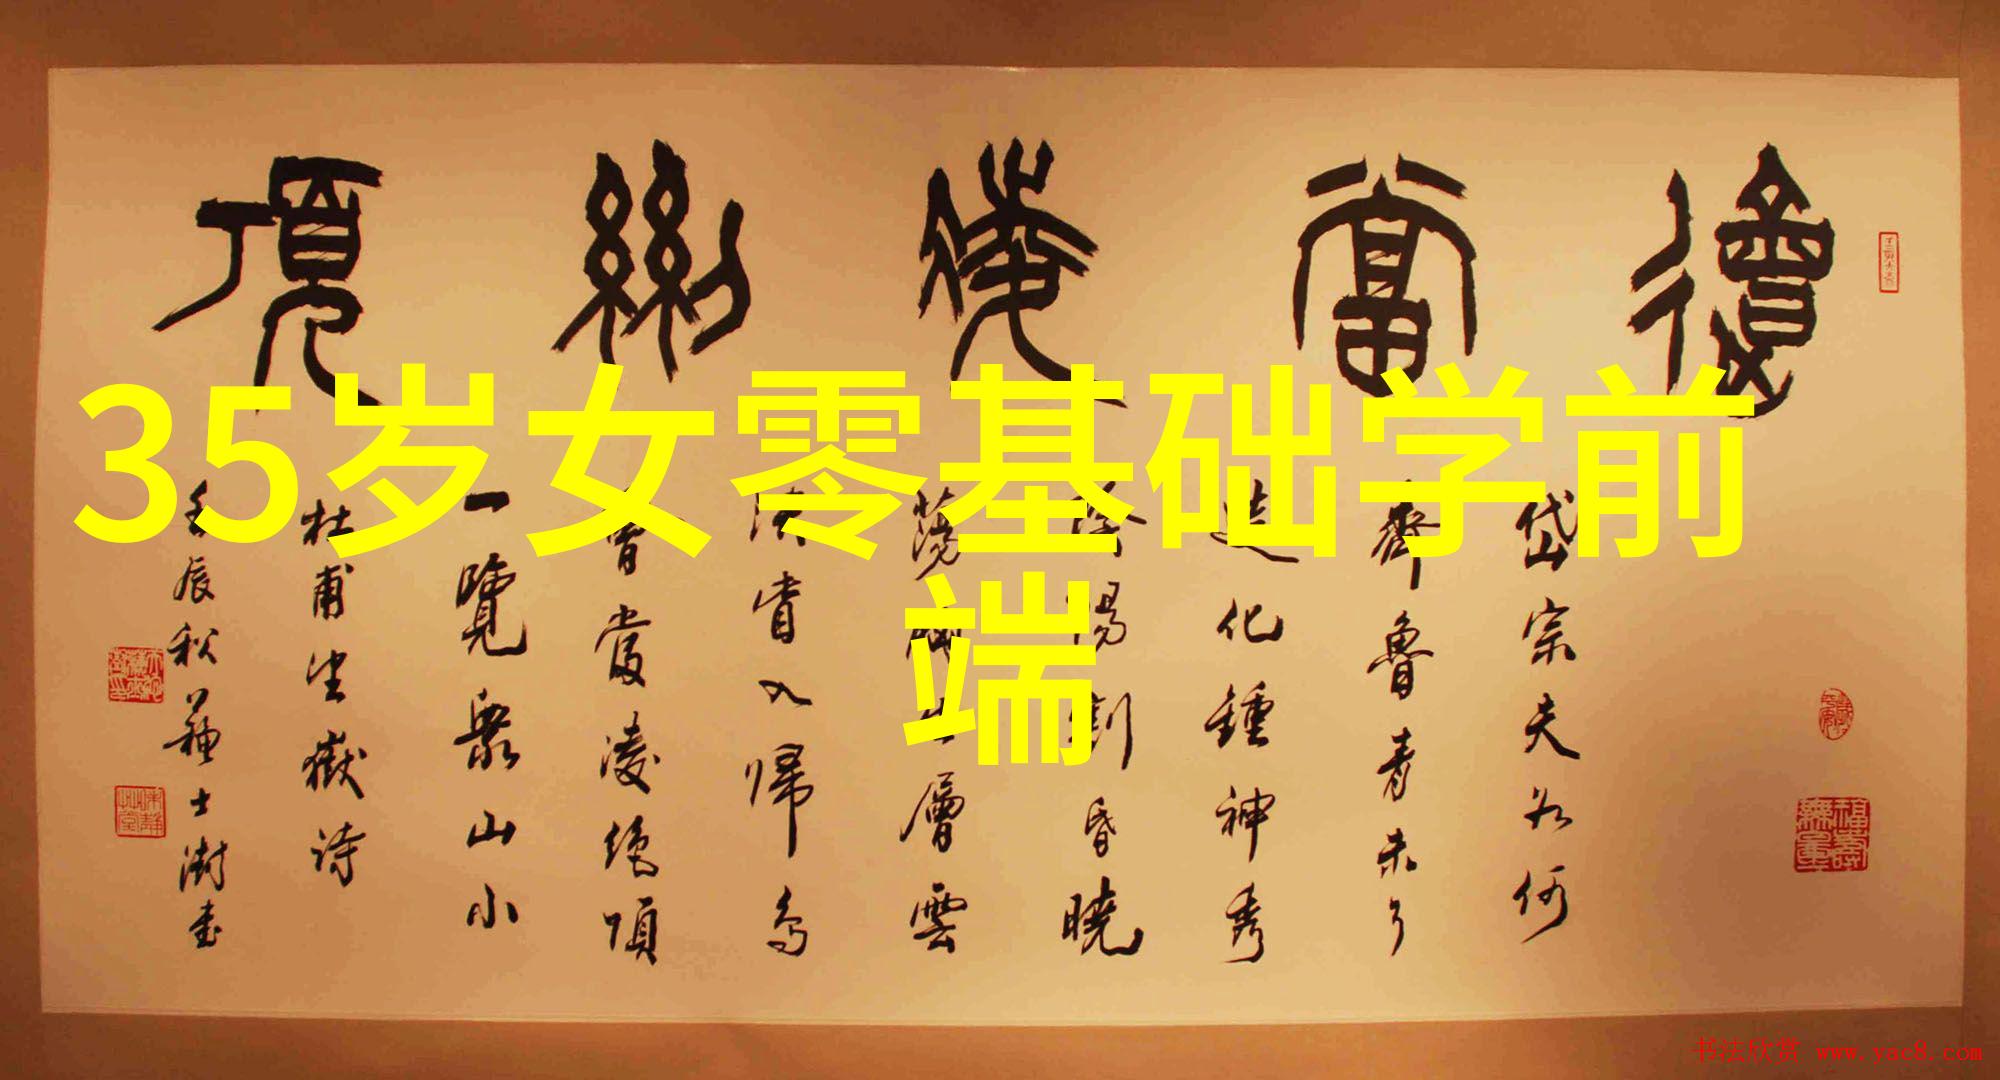 35岁女零基础学前
端
會當凌絕頂
岱宗夫如何
齊魯青未了
造化鍾神秀
陰陽割昏曉
蕩胸生層雲
決眥入歸鳥
會當凌絕頂
一覽衆山小
杜甫望嶽詩
壬辰秋蘇士澍書
福壽無量
书法欣赏 www.yac8.com